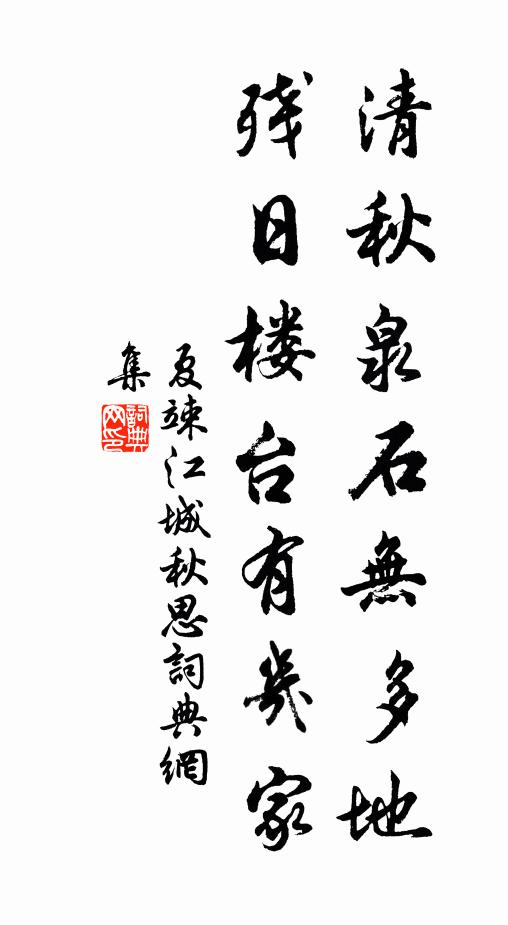 清秋泉石無多地
残日楼台有幾家
夏竦江城秋思詞典網
集
詞典
网印